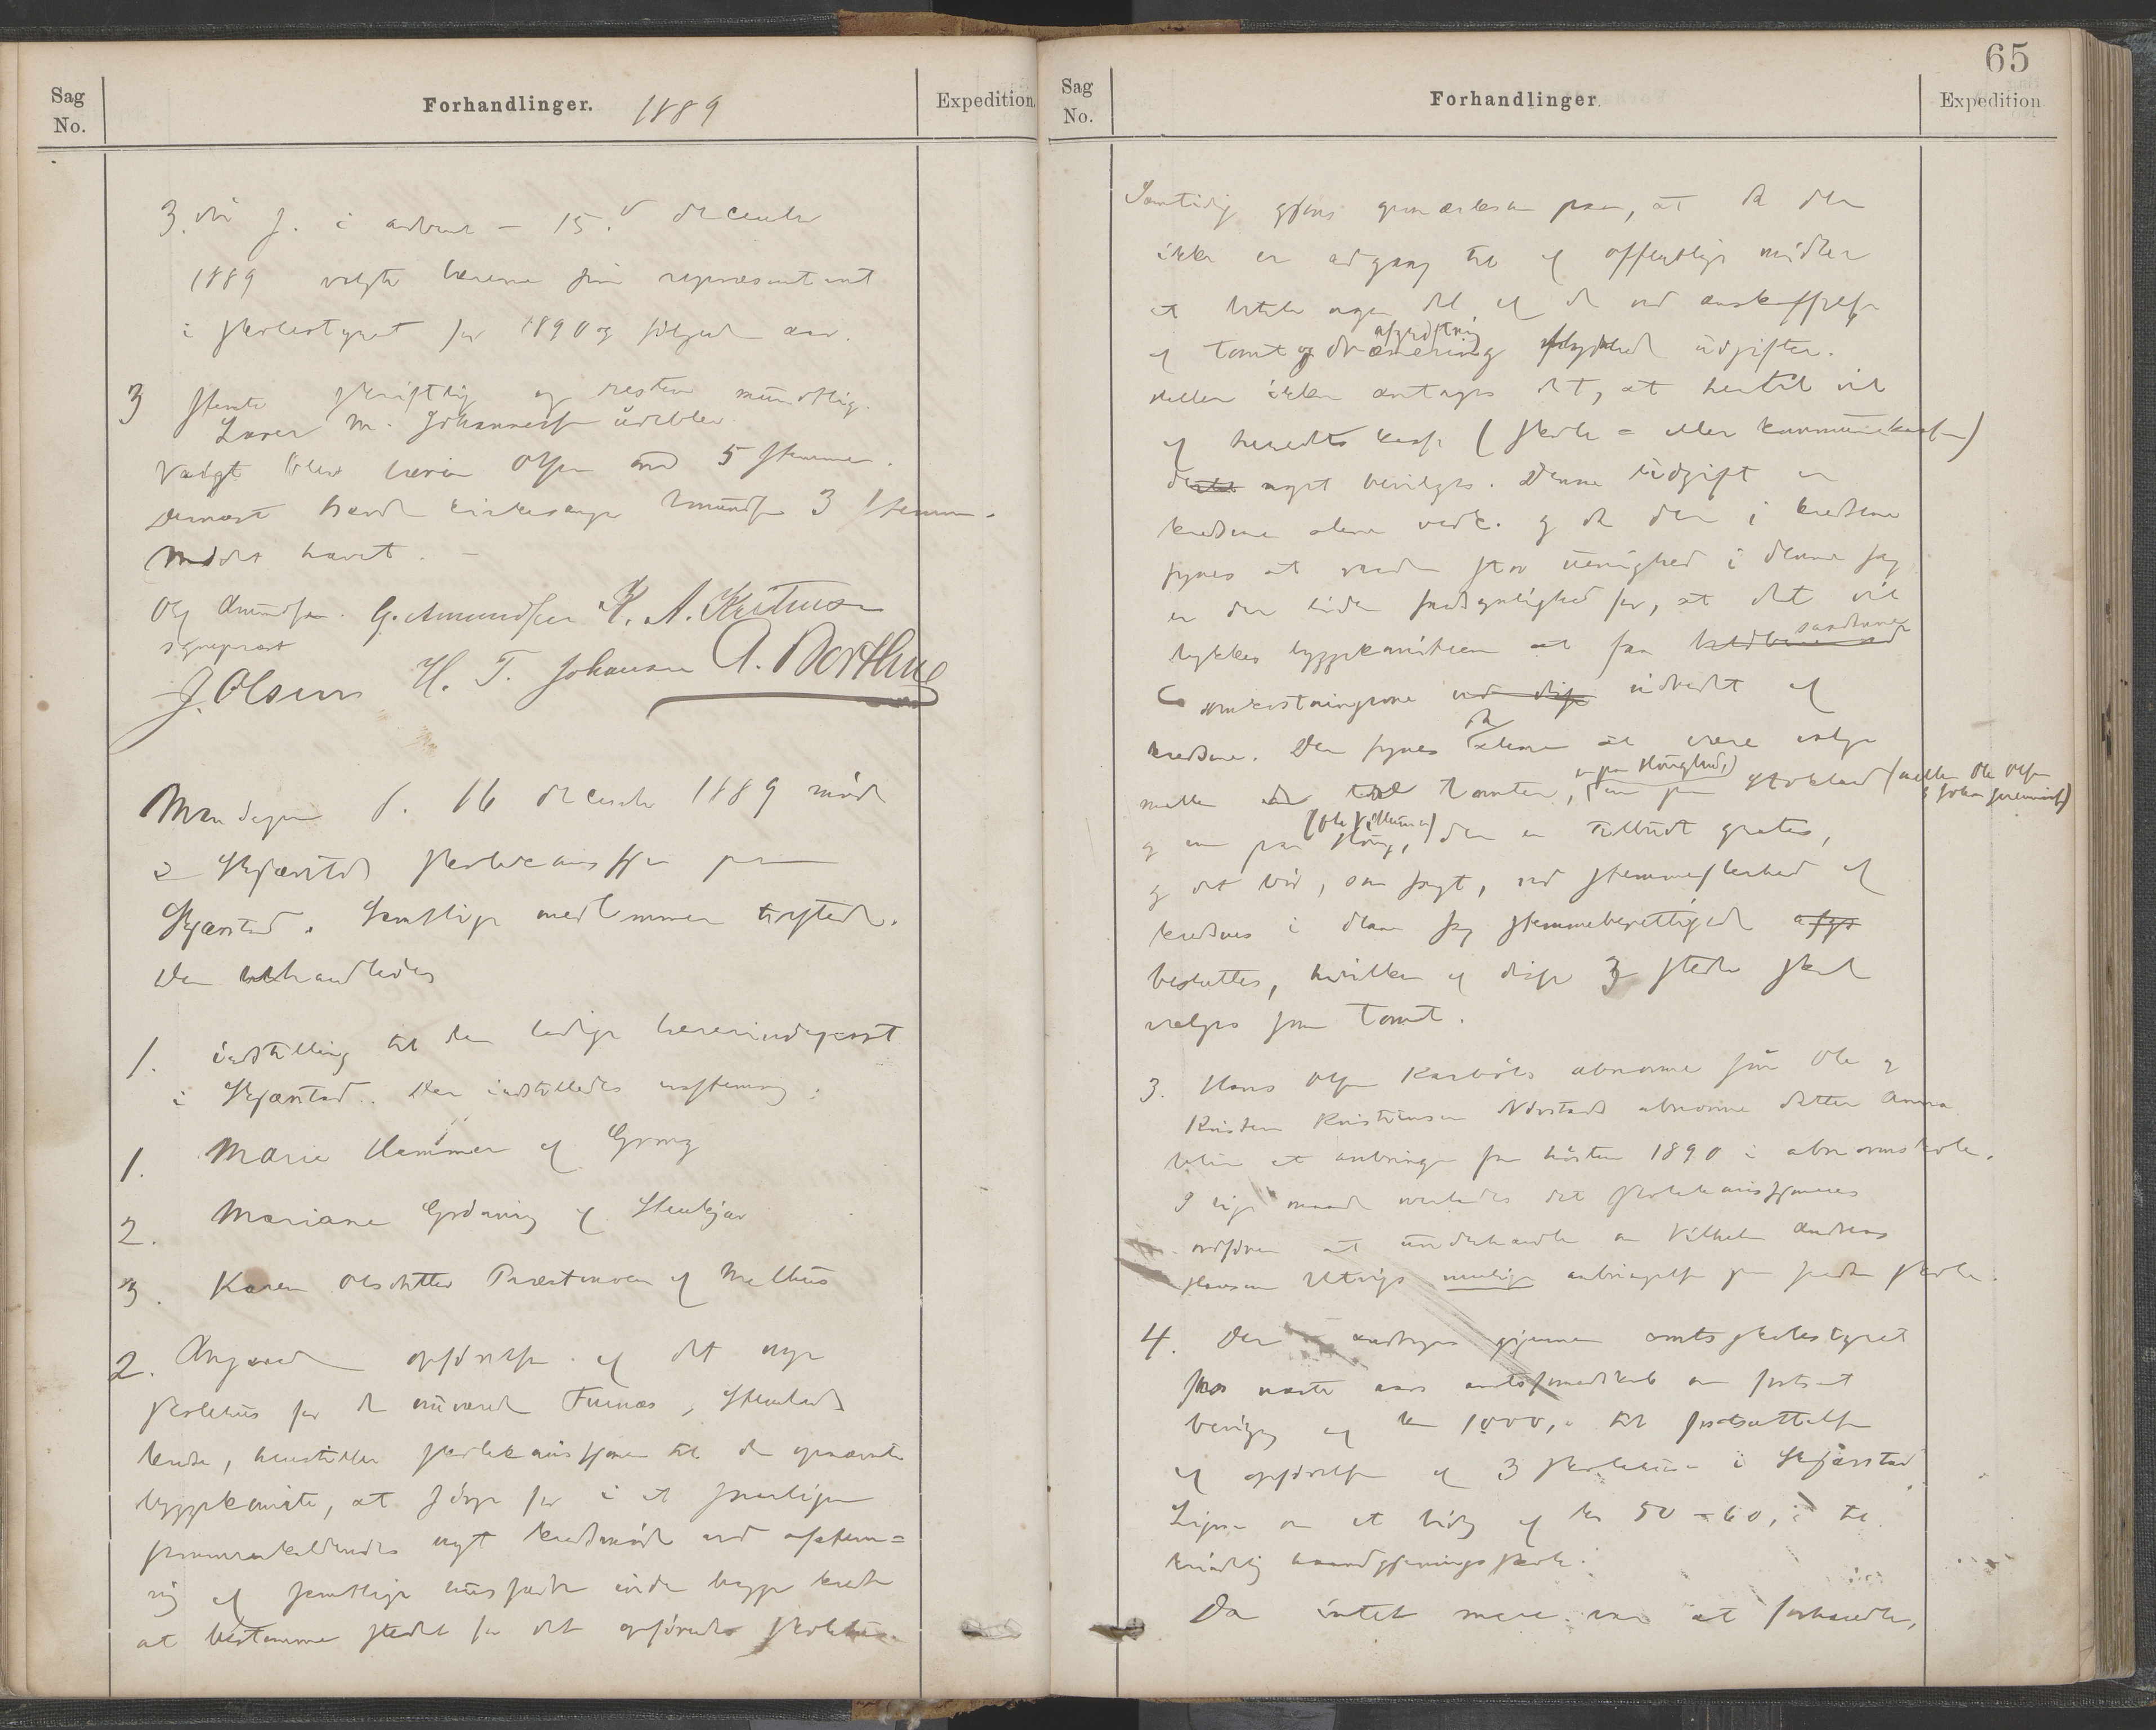 Sag
No.
Forhandlinger. 1889
Expedition.
3. die s. i advent – 15. december
1889 valgte lærerne sin repræsentant
i skolestyret for 1890 og følgende aar.
3 stemte skriftlig og resten mundtlig.
Lærer M. Johannessen udeblev.
Valgt blev lærer Olsen med 5 stemmer.
Dernæst havde kirkesanger Amundsen 3 stemmer.
Mødet hævet. –
Ol Amundsen. G. Amundsen K. A. Kristensen
sogneprest
J. Olsen H. T. Johansen A. Borthne
Mandagen d. 16 december 1889 møde
i Skjærstad skolekommission paa
Skjærstad. Samtlige medlemmer tilstede.
Der behandledes
1. indstilling til den ledige lærerindepost
i Skjærstad. Der indstilledes enstemmig:
1. Marie Hammer af Grong
2. Mariane Grønning af Stenkjær
3. Karen Olsdatter Præstmoen af Melhus
2. Angaaende opførelse af det nye
skolehus for de nuværende Furnæs, Stemlands
kredse, henstiller skolekommissionen til den opnævnte
byggekomite, at sørge for i et
sammenkaldendes nyt kredsmøde ved afstem=
ning af samtlige husfædre inden begge kredse
at bestemme stedet for det opførendes skolehus.
65
Sag
No.
Forhandlinger.
Expedition
Samtidig gjøres opmærksom paa, at da der
ikke er adgang til af offentlige midler
at betale nogen del af de ved anskaffelse
afgrøftning
af tomt og drænering udgifter.
Heller ikke antages det, at hertil vil
af herredets kasse (skole= eller kommunekassen)
noget bevilges. Denne udgift er
kredsene alene vedk. og da der i kredsene
synes at være stor uenighed i denne sag
er der liden sandsynlighed for, at det vil
lykkes byggekomiteen at faa
omkostningerne udredet af
kredsene. Der synes da alene at være valg
mellem tomter, en paa Høiglund, en paa (mellem Ole Olsen
og Johan Jeremias)
og en paa Høug, (Ole Villumsen) der er tilbudt gratis,
og det bør, som sagt, ved stemmeflerhed af
kredsenes i denne sag stemmeberettigede
besluttes, hvilken af disse 3 steder skal
vælges som tomt.
3. Hans Olsen Karbøls abnorme søn Ole og
Kristen Kristensen Nordstads abnorme datter Anna
bliver at anbringe fra høsten 1890 i abnormskole.
I lige maade overlades det skolekommissionens
ordfører at underhandle om Vilhelm Andreas
Hansen Utvigs mulige anbringelse paa saadan skole.
4. Der andrages gjennem amtsskolestyret
hos næste aars amtsformandskab om fortsat
bevilgning af kr 1000,- til fortsættelse
af opførelse af 3 skolehuse i Skjærstad.
Ligesaa om et bidrag af kr 50–60,- til
kvindelig haandgjerningsskole.
Da intet mere var at forhandle,